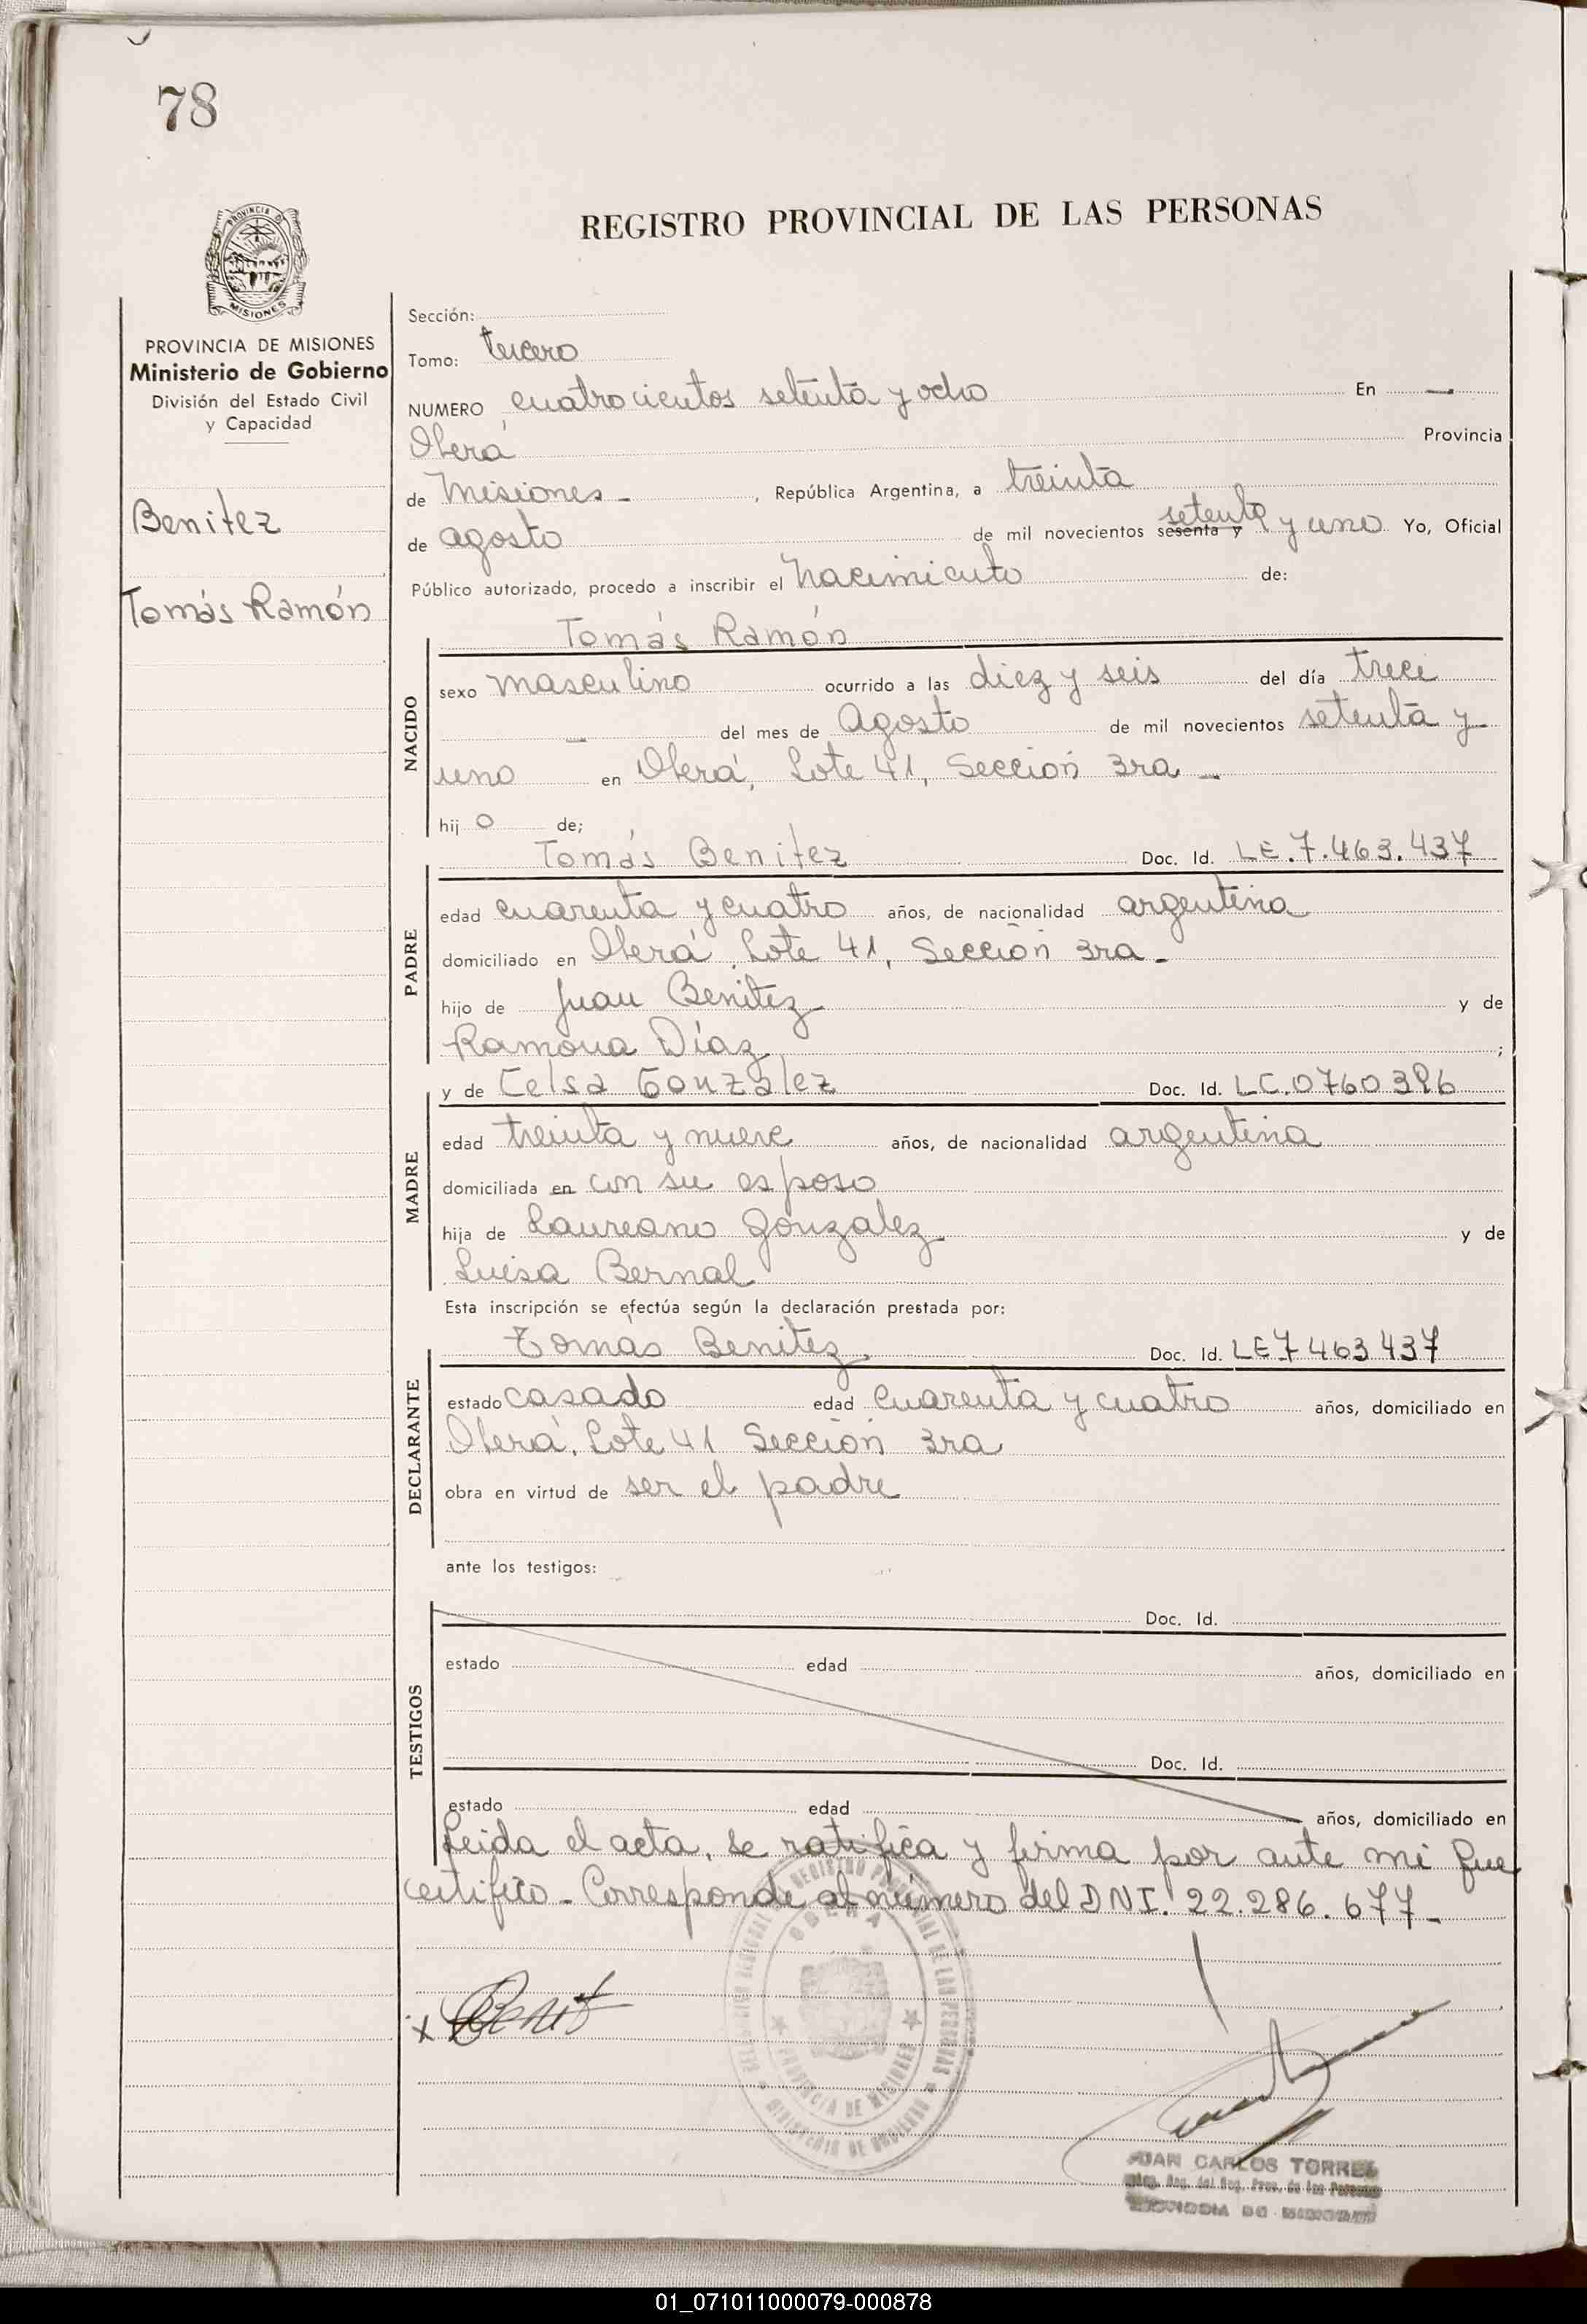 78
REGISTRO PROVINCIAL DE LAS PERSONAS
PROVINCIA DE
MISIONES
PROVINCIA DE MISIONES
Ministerio de Gobierno
División del Estado Civil
y Capacidad
Benitez
Tomás Ramón
Sección:
Tomo: tercero
NUMERO cuatrocientos setenta y ocho En —
Oberá Provincia
de Misiones - , República Argentina, a treinta
de agosto de mil novecientos sesenta y setenta y uno Yo, Oficial
Público autorizado, procedo a inscribir el Nacimiento de:
Tomás Ramón
NACIDO
sexo masculino ocurrido a las diez y seis del día trece
— del mes de Agosto de mil novecientos setenta y
uno en Oberá, Lote 41, Sección 3ra -
hij o de;
Tomás Benitez Doc. Id. LE.7.463.437
PADRE
edad cuarenta y cuatro años, de nacionalidad argentina
domiciliado en Oberá, Lote 41, Sección 3ra -
hijo de Juan Benitez y de
Ramona Díaz ;
y de Celsa González Doc. Id. LC.0760396
MADRE
edad treinta y nueve años, de nacionalidad argentina
domiciliada en con su esposo
hija de Laureano Gonzalez y de
Luisa Bernal
Esta inscripción se efectúa según la declaración prestada por:
Tomás Benitez Doc. Id. LE7463437
DECLARANTE
estado casado edad cuarenta y cuatro años, domiciliado en
Oberá, Lote 41 Sección 3ra
obra en virtud de ser el padre
ante los testigos:
TESTIGOS
Doc. Id.
estado edad años, domiciliado en
Doc. Id.
estado edad años, domiciliado en
Leida el acta, se ratifica y firma por ante mi que
certifico - Corresponde al número del DNI. 22.286.677 -
x Benit
OBERA
PROVINCIA DE MISIONES
MINISTERIO DE GOBIERNO
JUAN CARLOS TORRES
01_071011000079-000878